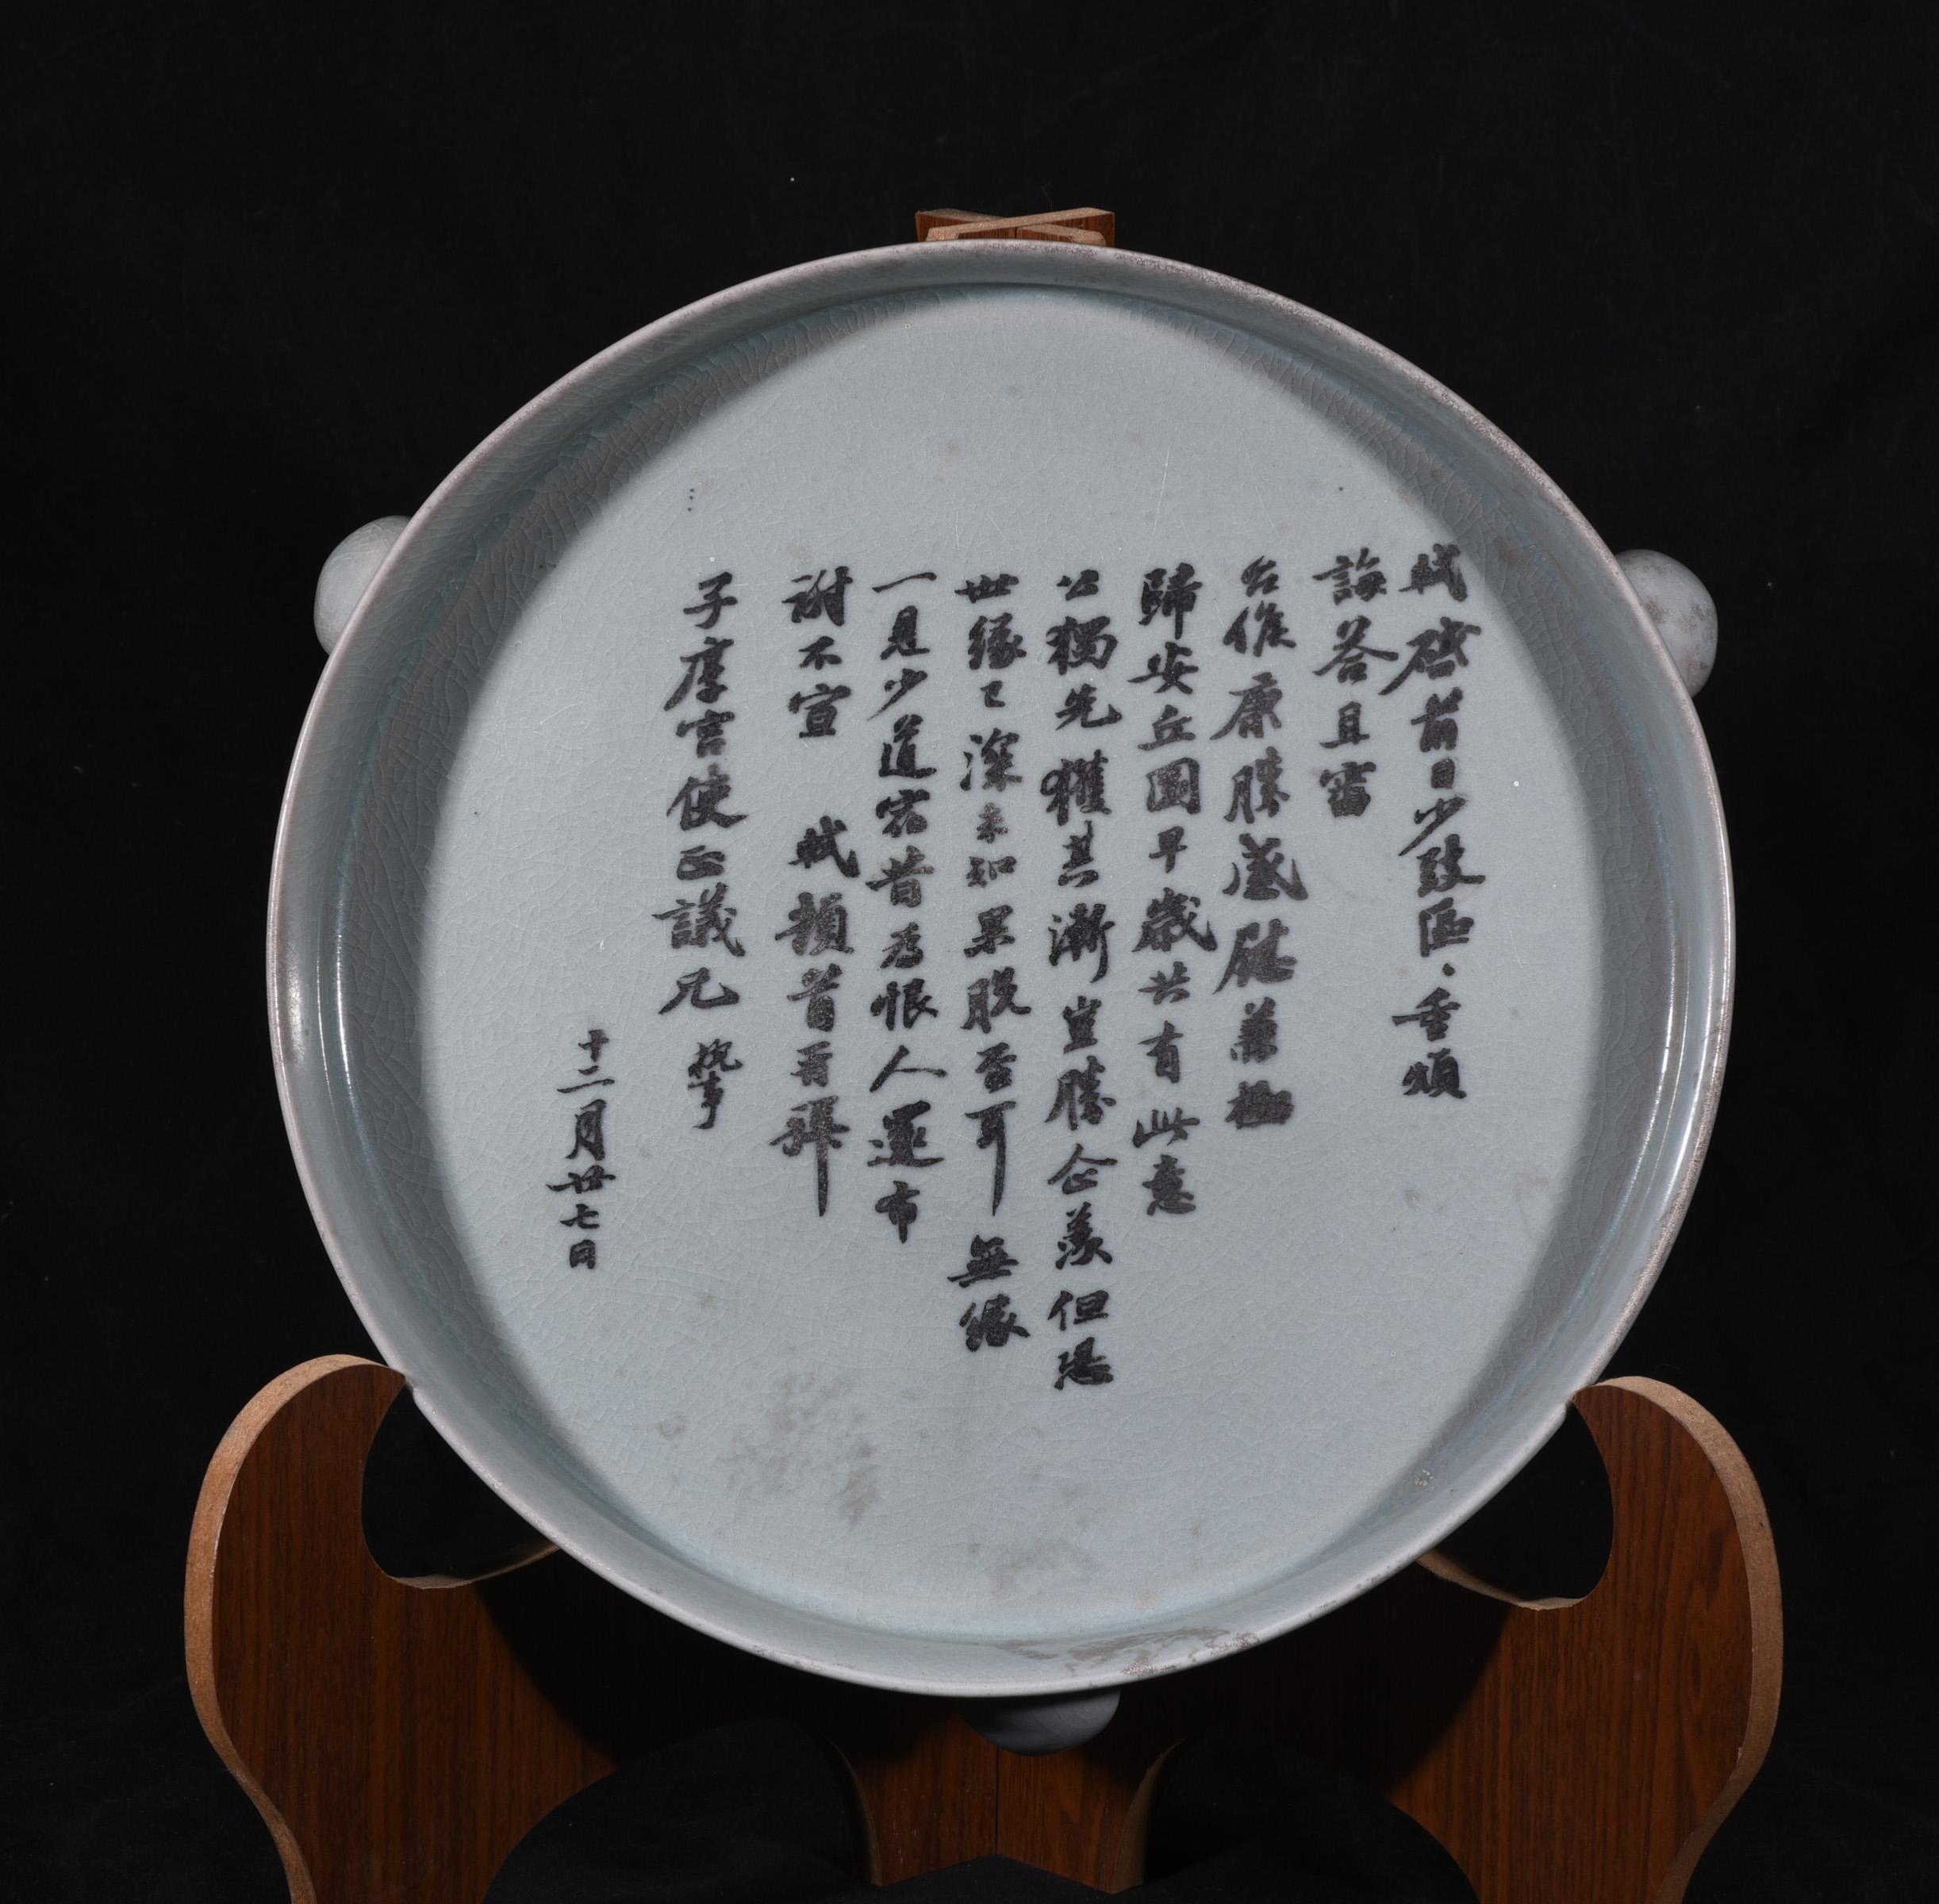 軾啓前日少致區、重煩
誨答且審
台候康勝感慰兼極
歸安丘園早歲共有此意
公獨先獲其漸豈勝企羨但恐
世緣已深未知果脫否耳無緣
一見少道宿昔爲恨人還布
謝不宣 軾頓首再拜
子厚宮使正議兄執事
十二月廿七日